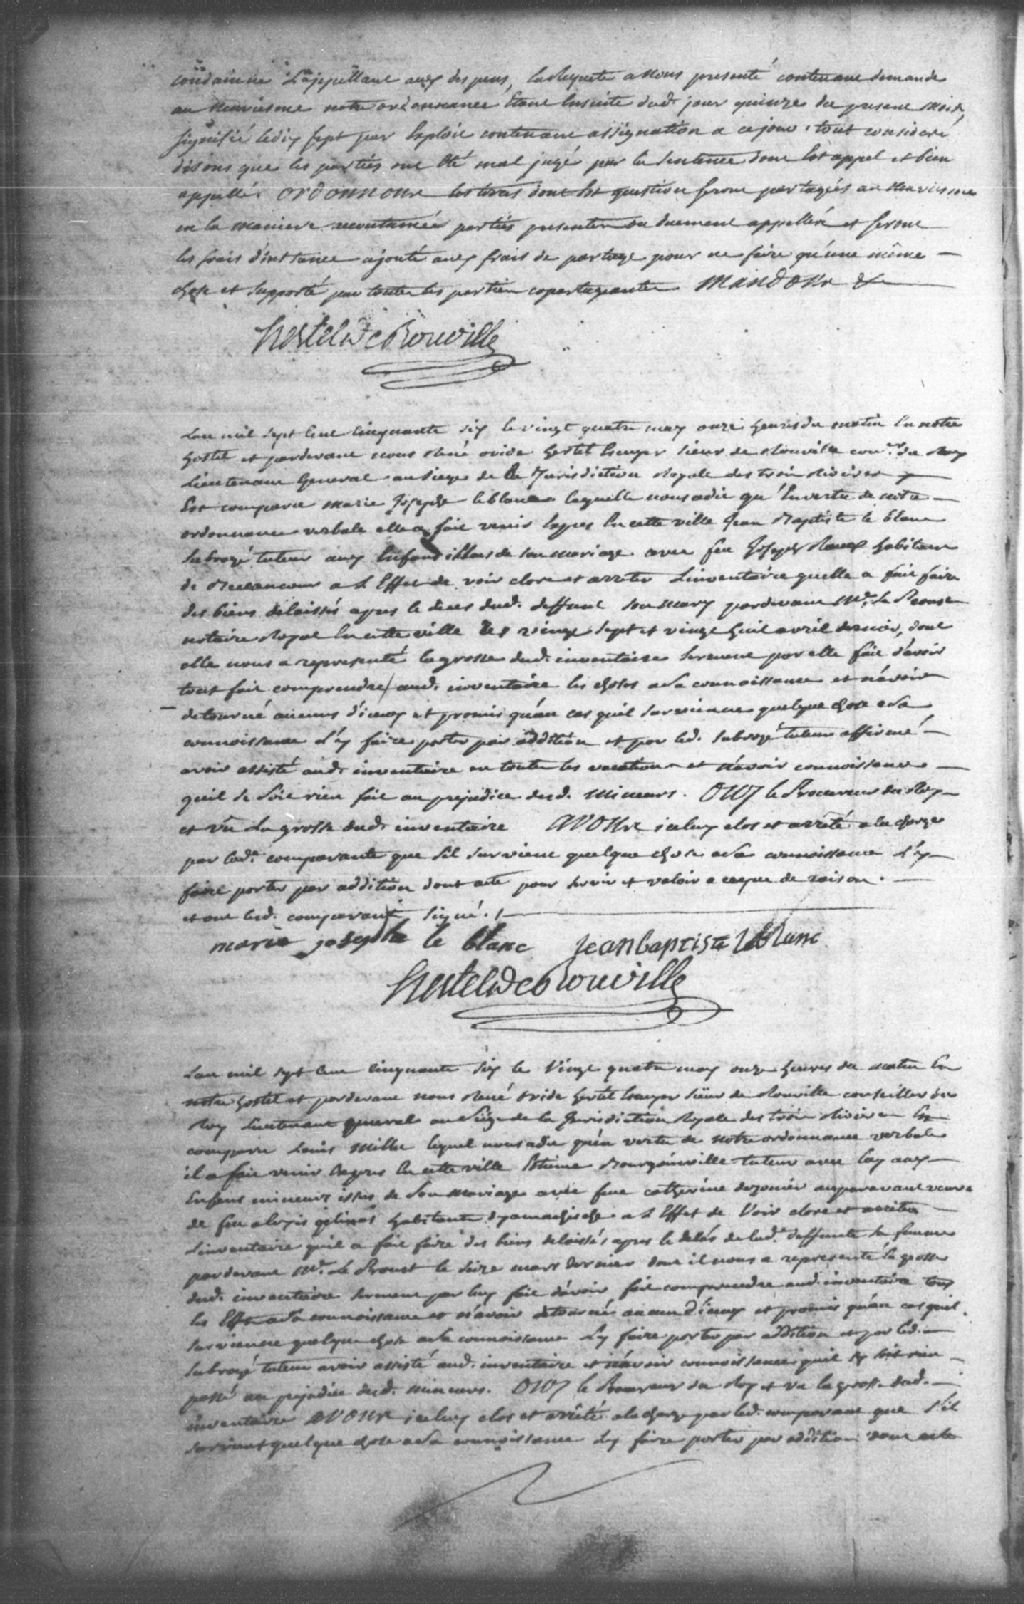 condamné L'appellant aux depens, la Requete a Nous presenté contenant demande
au bas notre ordonnance Etant Ensuite dud. jour quinze du present mois,
signifié le dix sept par Exploit contenant assignation a ce jour; tout consideré
disons que les parties ont été mal jugé par la Sentence dont Est appel et bien
appellé. ORDONNONS les terres dont Est question seront partagées
en la maniere accoutumée parties presentes ou duement appellées et seront
les frais d'instance ajouté aux frais de partage pour ne faire qu'une même
chose et supporté par toutes les parties copartageantes MANDONS &
Hertel de Rouville
L'an mil sept cent cinquante six le vingt quatre may onze heures du matin En notre
hostel et pardevant nous René ovide hertel Ecuyer sieur de Rouville con.er du Roy
Lieutenant General au siege de la Jurisdiction Royale des trois Rivieres
Est comparu marie Josephe leblanc laquelle nous a dit qu'En vertu de notre
ordonnance verbale elle a fait venir Exprès En cette ville Jean Baptiste le blanc
subrogé tuteur aux Enfans de son mariage avec feu Joseph habitant
de Becancour a L'Effet de voir clore et arreter L'inventaire quelle a fait faire
des biens delaissés apres le deces dud. deffunt son mary pardevant M.e Le Proust
notaire Royal En cette ville les vingt sept et vingt huit avril dernier, dont
elle nous a representé la grosse dud. inventaire serment par elle fait d'avoir
tout fait comprendre aud. inventaire les choses a sa connoissance et n'avoir
detourné aucuns d'iceux et promis qu'au cas qu'il survienne quelque chose a sa
connoissance d'y faire porter par addition et par led. subrogé tuteur affirmé
avoir assisté aud. inventaire en toutes les vacations et n'avoir connoissance
quil se soit rien fait au prejudice desd. Mineurs. OUY le Procureur du Roy
et vu La grosse dud. inventaire AVONS iceluy clos et arrété a la charge
par lad.e comparante que s'il survient quelque chose a sa connoissance d'y
faire porter par addition dont acte pour servir et valoir a ce que de raison.
et ont lesd. comparant signé.
marie joseph le blanc jean baptiste leblanc
Hertel de Rouville
L'an mil sept cent cinquante six le vingt quatre may onze heures du matin En
notre hostel et pardevant nous René ovide hertel Ecuyer sieur de Rouville conseiller du
Roy Lieutenant general au siege de la Jurisdiction Royale des trois Rivieres Est
comparu Louis Mille lequel nous a dit qu'en vertu de notre ordonnance verbale
il a fait venir Exprès En cette ville Etienne Bourgainville tuteur avec luy aux
Enfans mineurs issus de son mariage avec feue catherine auparavant veuve
de feu alexis gelinas habitant d'yamachiche a L'Effet de voir clore et arreter
L'inventaire quil a fait faire des biens delaissés apres le deces de lad.e deffunte sa femme
pardevant M.e Le Proust le seize mars dernier dont il nous a representé la grosse
dud. inventaire serment par luy fait d'avoir fait comprendre aud. inventaire tous
les Effets a sa connoissance et n'avoir detourné aucun d'iceux et promis qu'au cas quil
survienne quelque chose a sa connoissance d'y faire porter par addition et par led.
subrogé tuteur avoir assisté aud. inventaire et n'avoir connoissance quil se soit rien
passé au prejudice desd. mineurs. OUY le Procureur du Roy et vu la grosse dud.
inventaire AVONS iceluy clos et arrété a la charge par led. comparant que s'il
survient quelque chose a sa connoissance d'y faire porter par addition dont acte